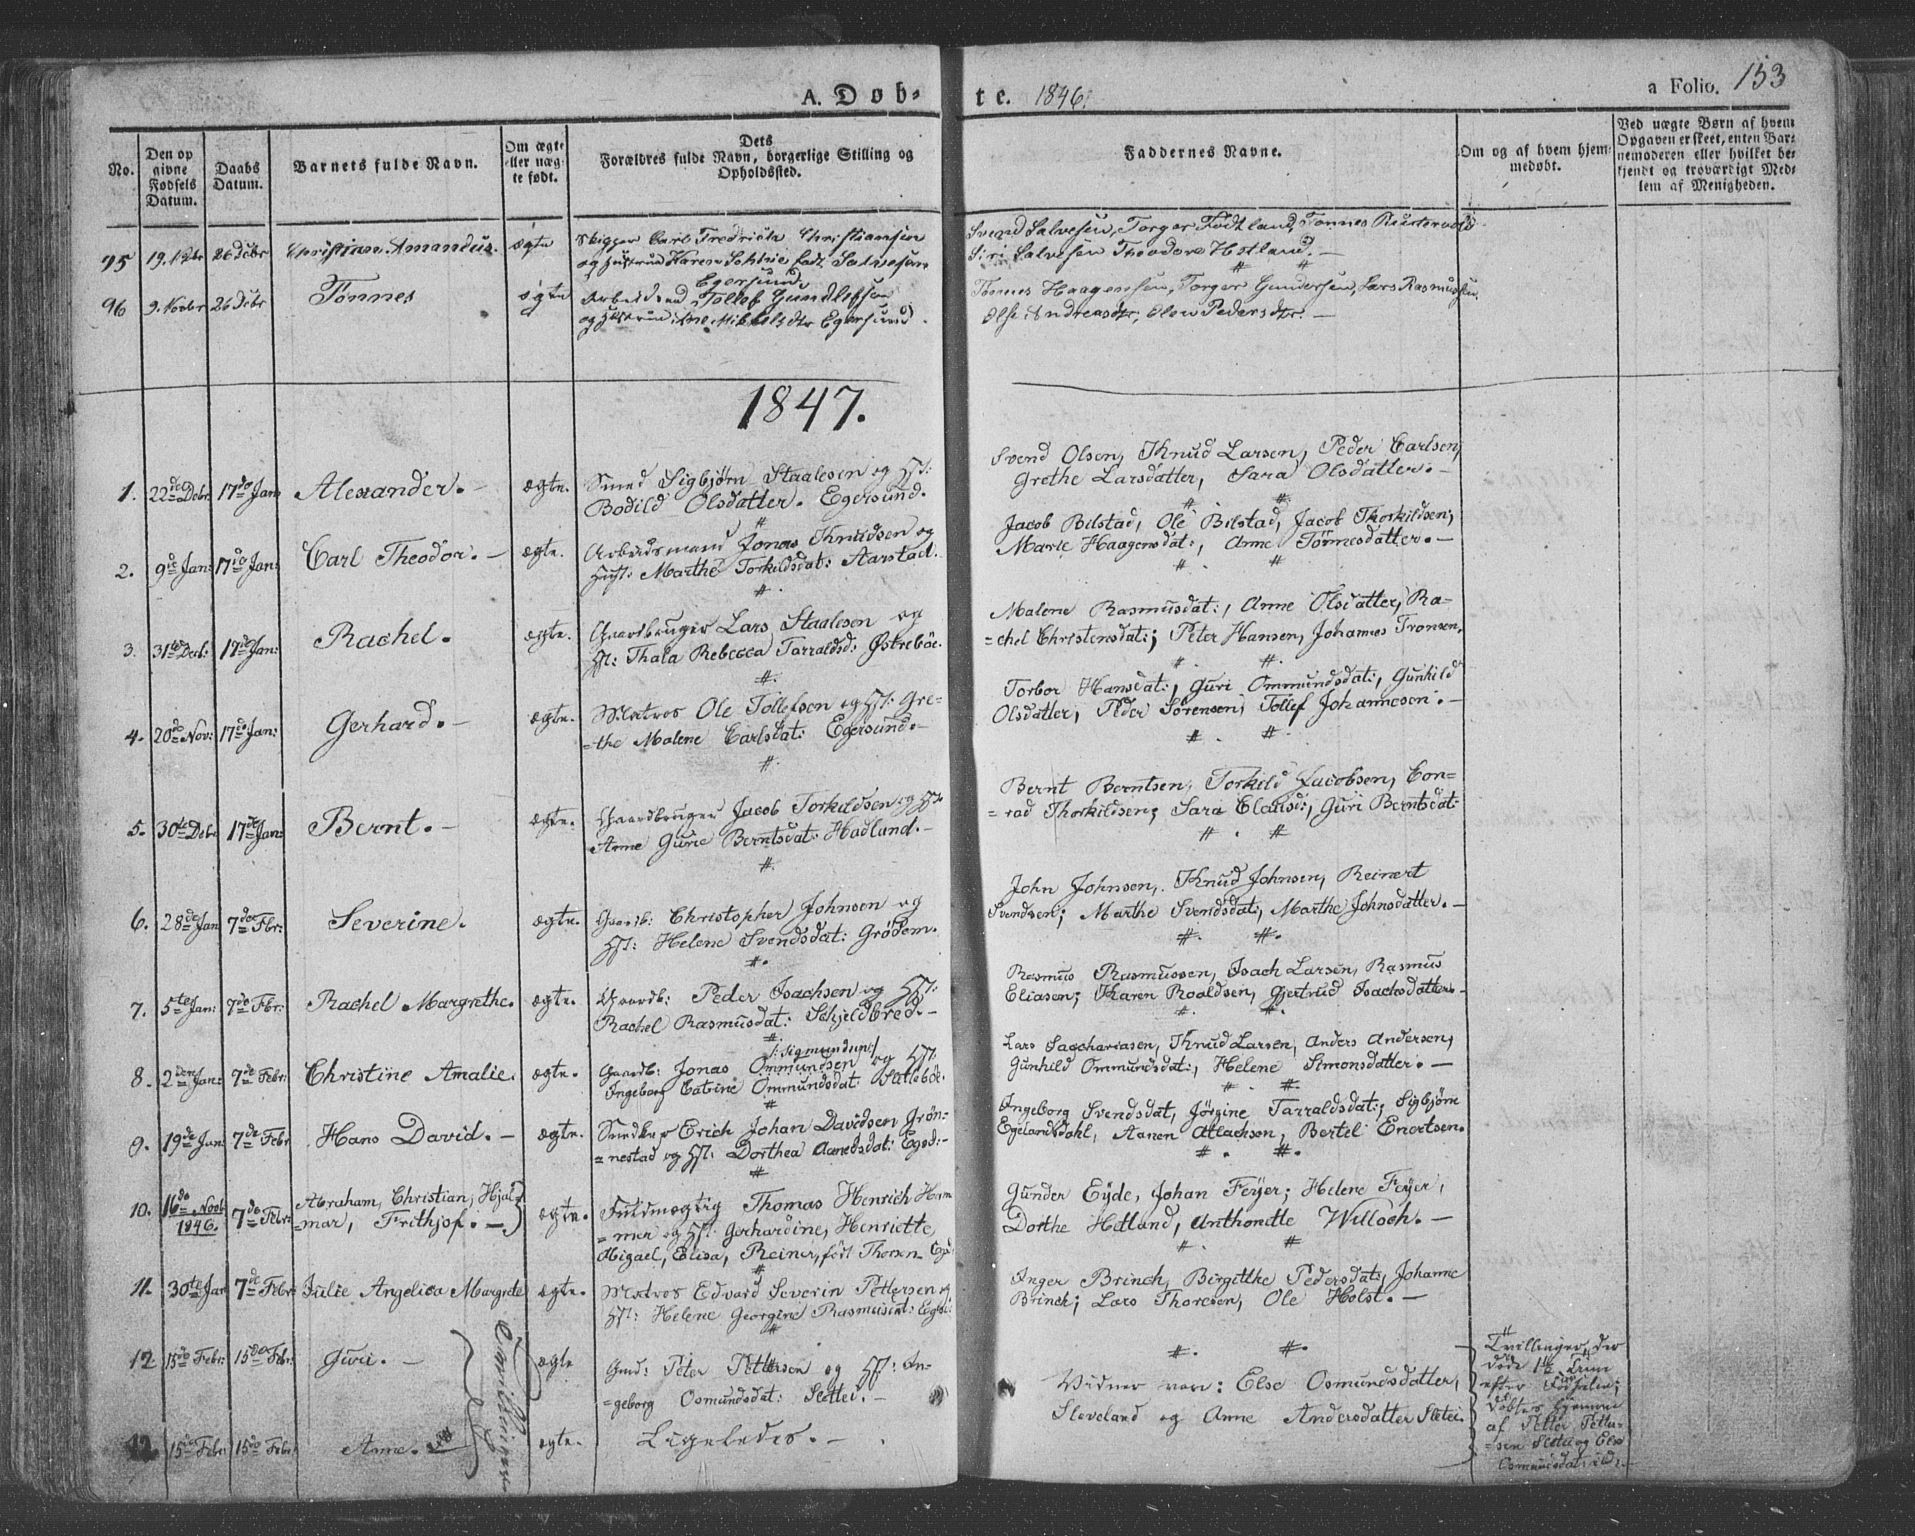 A. Døb-
te. 1846.
a Folio. 153
No.
Den op
givne
Fødsels
Datum.
Daabs
Datum.
Barnets fulde Navn.
Om ægte
eller uæg-
te født.
Dets
Forældres fulde Navn, borgerlige Stilling og
Opholdssted.
Faddernes Navne.
Om og af hvem hjem-
medøbt.
Ved uægte Børn af hvem
Opgaven er skeet, enten Bar-
nemoderen eller hvilket be-
kjendt og troværdigt Med-
lem af Menigheden.
95 26 Debr Christian Amandus. ægte
Skipper Carl Fredrich Christiansen
og Hustrue Karen født Salvesen
Egersund.
Svend Salvesen, Torger Fodtland, Tønnes
Siri Salvesen Theodore Hetland. —
96 9. Novbr 26 Debr Tønnes ægte
Arbeidsmd Tollef Gundlefsen
og Hustrue Ane Mikkelsdtr Egersund.
Tønnes Haagensen, Torger Gundersen, Lars Rasmussen,
Else Andreasdtr, Olew Pedersdtr. —
1847.
1. 22de Debr. 17de Jan: Alexander. — ægte.
Smed Sigbjørn Staalesen og Hst:
Bodild Olsdatter. Egersund.
Svend Olsen, Knud Larsen, Peder Carlsen,
Grethe Larsdatter, Sara Olsdatter. —
2. 9de Jan: 17de Jan: Carl Theodor. — ægte.
Arbeidsmand Jonas Knudsen og
Hust: Marthe Torkildsdat: Aarstad.
Jacob Bilstad, Ole Bilstad, Jacob Thorkildsen;
Marie Haagensdat:, Anne Tønnesdatter. —
3. 31te Decb: 17de Jan: Rachel. ægte.
Gaardbruger Lars Staalesen og
Hst: Thala Rebecca Tarraldsd: Østrebøe.
Malene Rasmusdat:, Anne Olsdatter, Ra-
=chel Christensdat:; Peter Hansen, Johannes Tronsen.
4. 20de Nov: 17de Jan: Gerhard. — ægte.
Matros Ole Tollefsen og Hst: Gre-
=the Malene Carlsdat: Egersund. —
Torbor Hansdat:, Guri Ommundsdat:, Gunhild
Olsdatter, Peder Sørensen, Tollef Johannesen. —
5. 30te Debr 17de Jan: Bernt. — ægte.
Gaardbruger Jacob Torkildsen og Hst:
Anne Gurie Berntsdat: Hadland. —
Bernt Berntsen, Torkild Jacobsen, Con-
=rad Thorkildsen; Sara Clausd:, Guri Berntsdat:
6. 28de Jan 7de Fbr: Severine. ægte.
Gaardb: Christopher Johnsen og
Hst: Helene Svendsdat: Grødem.
John Johnsen, Knud Johnsen, Reinert
Svendsen; Marthe Svendsdat:, Marthe Johnsdatter. —
7. 5te Jan: 7de Fbr: Rachel Margrethe. ægte.
Gaardb: Peder Isachsen og Hst:
Rachel Rasmusdat: Schjeldbred. —
Rasmus Rasmussen, Isach Larsen, Rasmus
Eliasen; Karen Roaldsen, Gjertrud Isachsdatter. —
8. 2den Jan: 7de Febr: Christine Amalie. ægte.
Gaardb: Jonas Ommundsen og Hst:
Ingeborg Catrine Ommundsdat:
Lars Sagchariasen, Knud Larsen, Anders Andersen,
Gunhild Ommundsdat:, Helene Simonsdatter. —
9. 19de Jan 7de Febr Hans David. — ægte.
Snedker Erich Johan Davidsen Grøn-
=nestad og Hst: Dorthea Aanedsdat: Egsd: —
Ingeborg Svendsdat, Jørgine Tarraldsdat:, Sigbjørn
Egelandsdahl, Aanen Atlachsen, Bertel Enertsen.
10. 16de Novb 1846. 7de Febr: Abraham, Christian, Hjal-
=mar, Frithjof. — ægte.
Fuldmægtig Thomas Henrich Ham
=mer og Hst: Gerhardine, Henriette,
Abigael, Elisa, Reiner, født Thorsen
Gunder Eyde, Johan Feyer; Helene Feyer,
Dorthe Hetland, Anthonette Willoch. —
11. 30te Jan 7de Febr: Julie Angelica Margrete ægte.
Matros Edvard Severin Pettersen og
Hst: Helene Georgine Rasmusdat:
Inger Brinch, Birgitthe Pedersdat, Johanne
Brinch; Lars Thoresen, Ole Holst. —
12 15de Febr: 15de Febr: Guri. — ægte
Gmd: Peter Pettersen og Hst: In-
=geborg Osmundsdat: Slettei. —
Vidner var: Else Osmundsdatter,
Sleveland og Anne Andersdatter Sletei.
12. 15de Febr: 15de Febr: Anne. ægte.
Ligeledes. —
Tvillinger, der
døde 1½ Time
efter Fødselen;
døbtes hjemme
af Petter Petter-
=sen Sletei og Else
Osmundsdat: